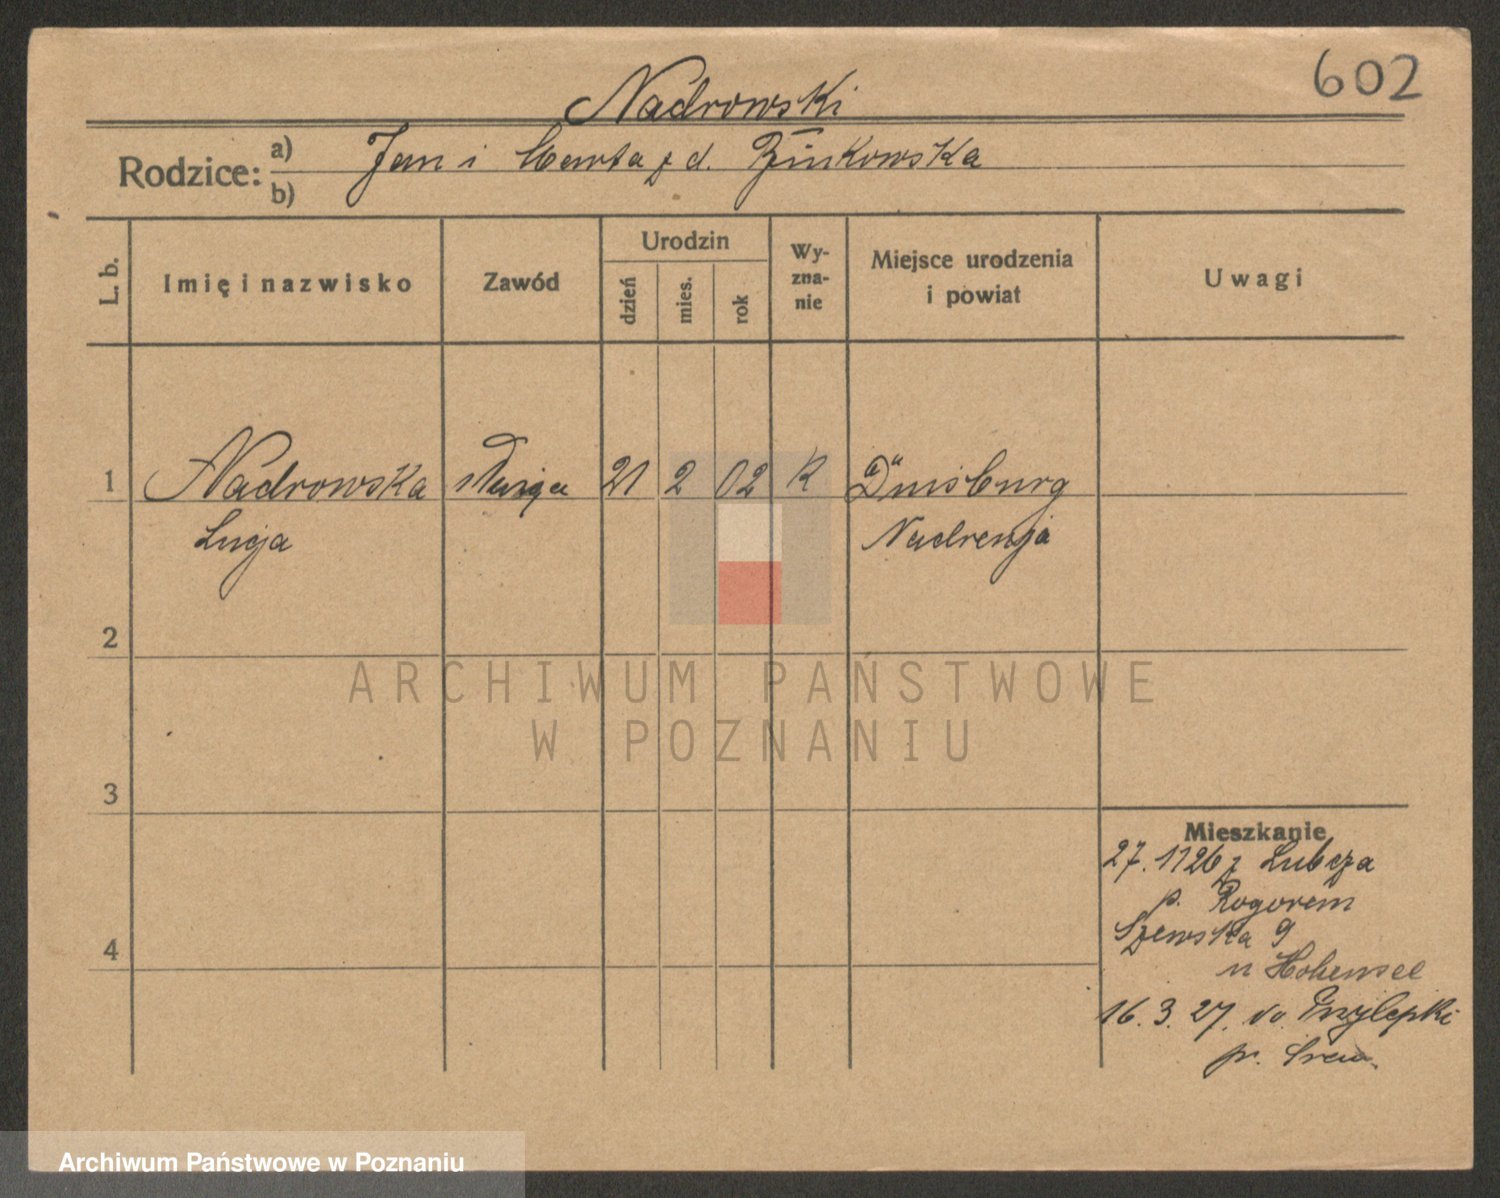 602
Nadrowski
Rodzice: a) Jan i Marta z d. Binkowska
b)
L. b.
Imię i nazwisko
Zawód
Urodzin
dzień
mies.
rok
Wy-
zna-
nie
Miejsce urodzenia
i powiat
Uwagi
1 Nadrowska służąca 21 2 02 R Duisburg
Lucja Nadrenja
2
3
4
Mieszkanie
27. 1126 z Lubcza
p. Rogorem
Szewska 9
u Hohensee
16. 3. 27. do Przylepki
pr. Srem.
ARCHIWUM PAŃSTWOWE
W POZNANIU
Archiwum Państwowe w Poznaniu